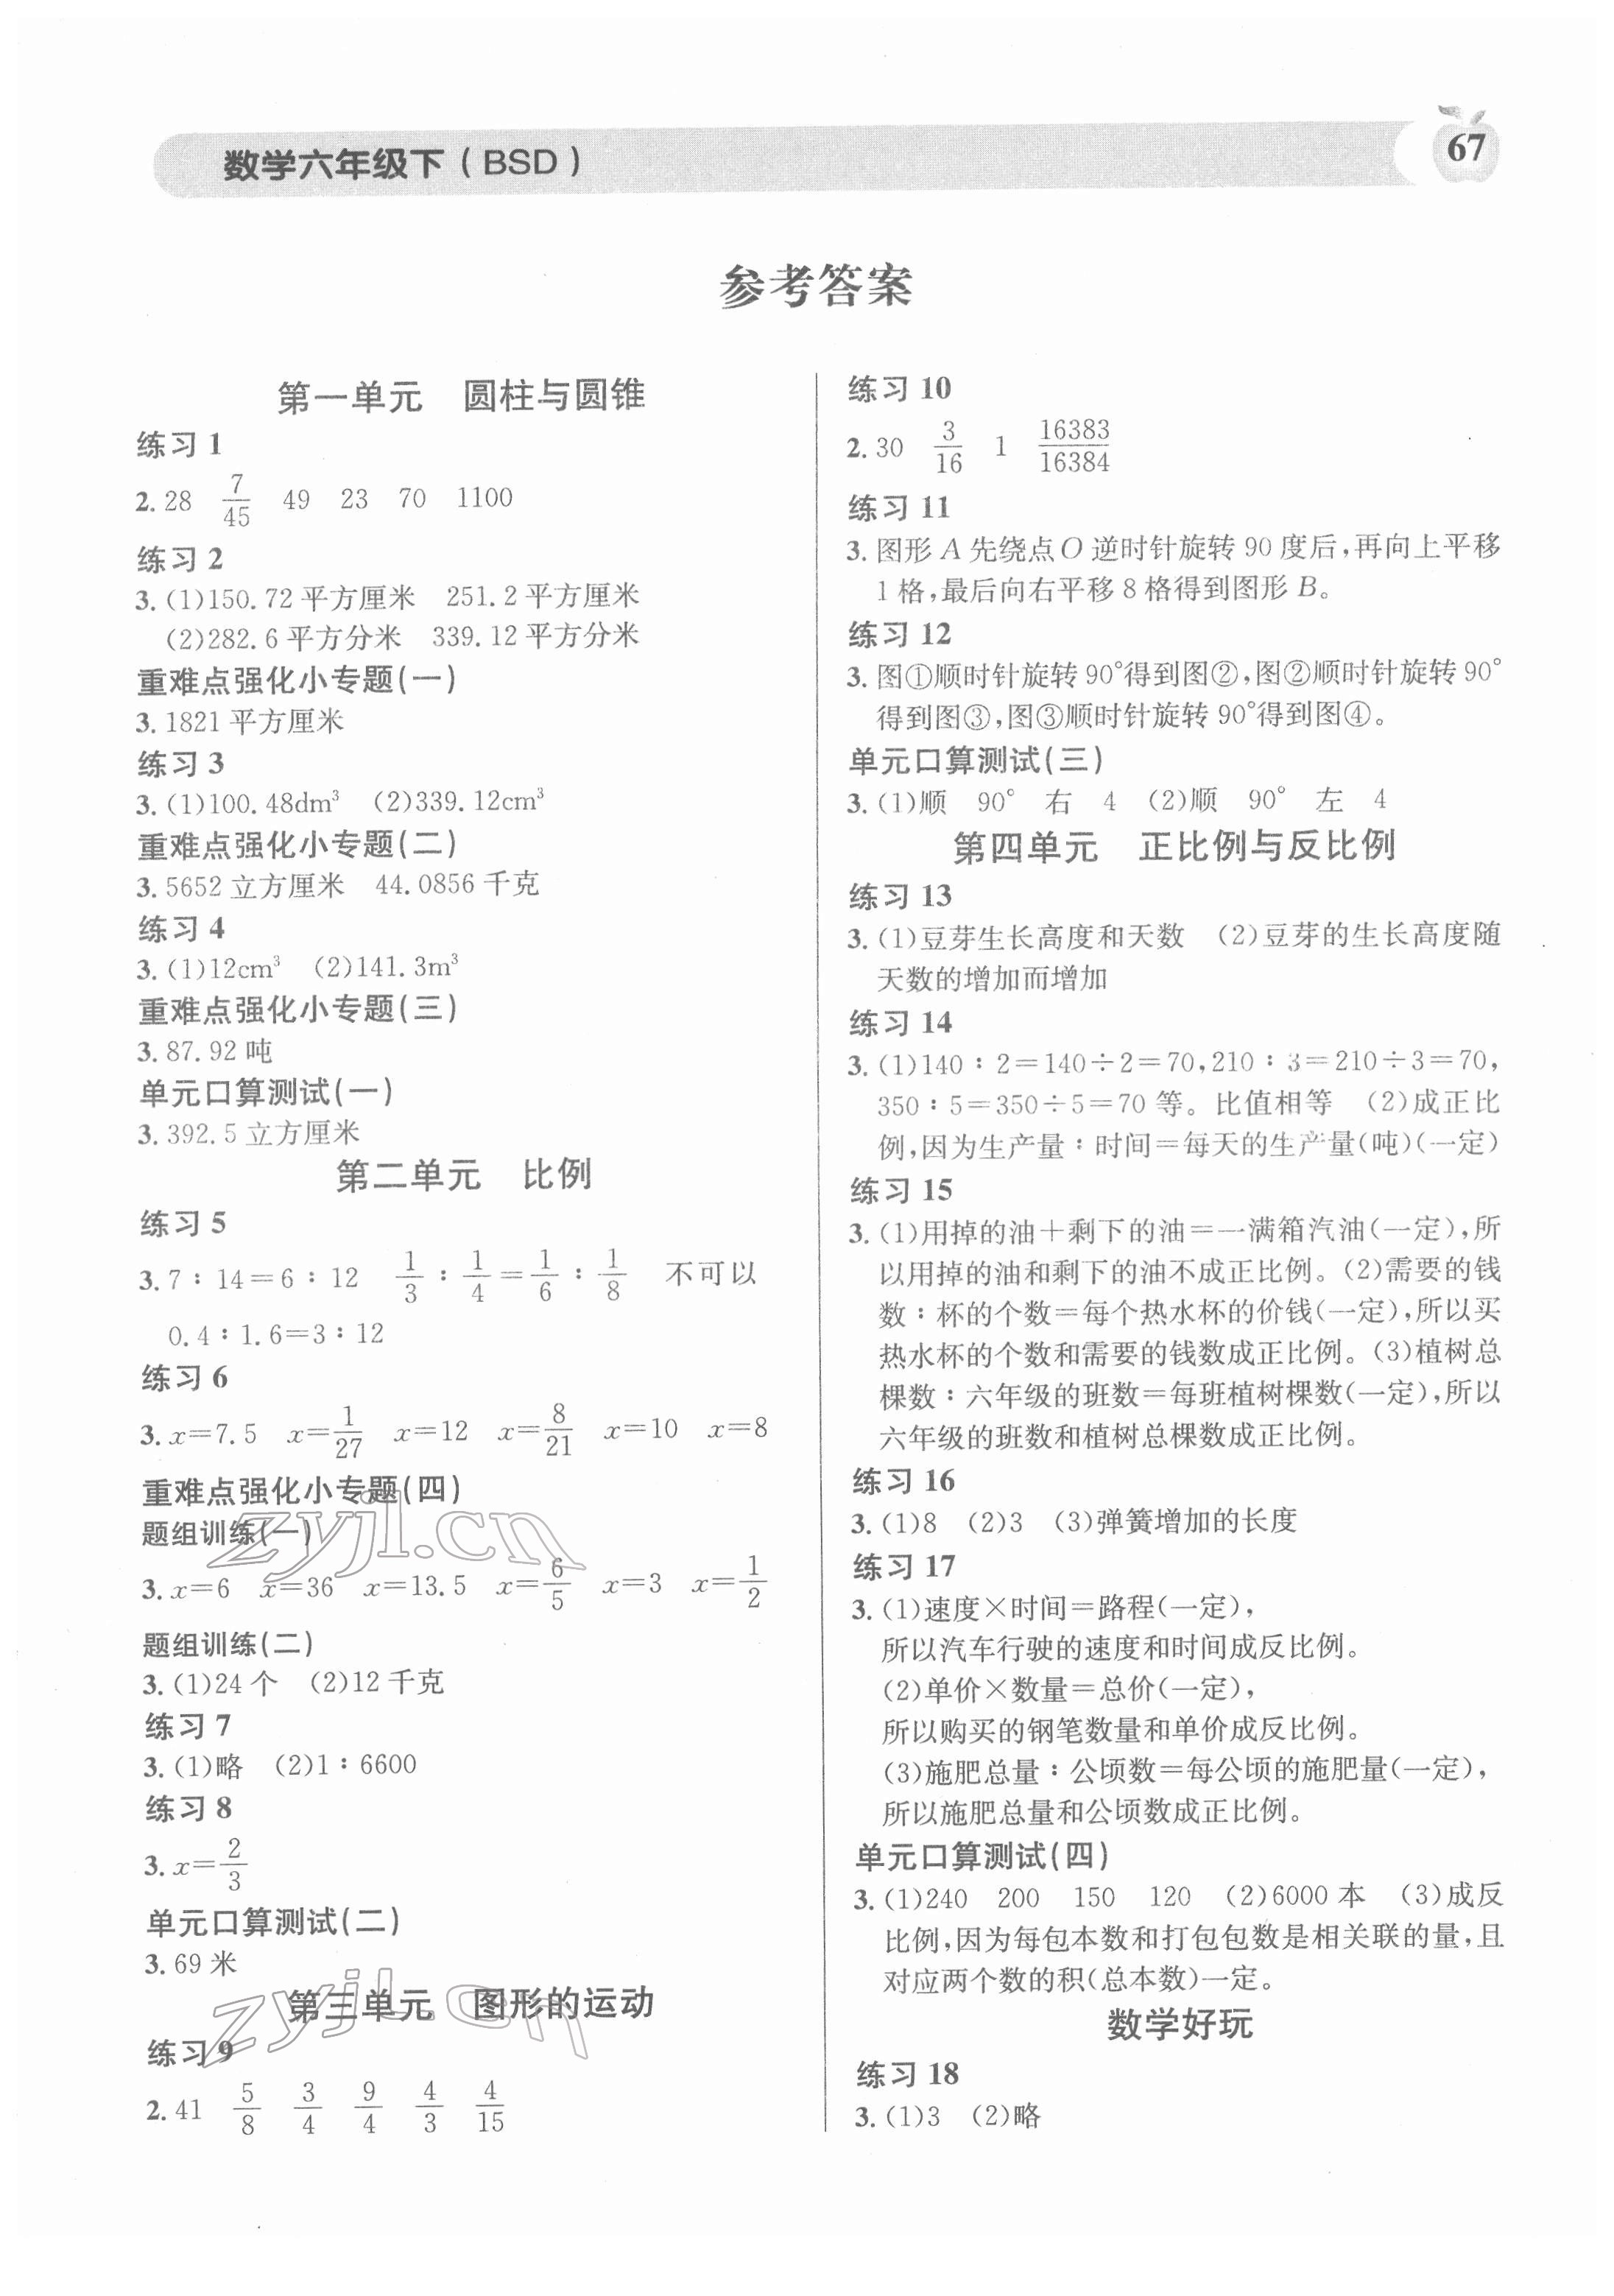 数学六年级下(BSD)
67
参考答案
第一单元 圆柱与圆锥
练习 1
2. 28 7/45 49 23 70 1100
练习 2
3. (1)150.72 平方厘米 251.2 平方厘米
(2)282.6 平方分米 339.12 平方分米
重难点强化小专题(一)
3. 1821 平方厘米
练习 3
3. (1)100.48dm³ (2)339.12cm³
重难点强化小专题(二)
3. 5652 立方厘米 44.0856 千克
练习 4
3. (1)12cm³ (2)141.3m³
重难点强化小专题(三)
3. 87.92 吨
单元口算测试(一)
3. 392.5 立方厘米
第二单元 比例
练习 5
3. 7∶14=6∶12 1/3∶1/4=1/6∶1/8 不可以
0.4∶1.6=3∶12
练习 6
3. x=7.5 x=1/27 x=12 x=8/21 x=10 x=8
重难点强化小专题(四)
题组训练(一)
3. x=6 x=36 x=13.5 x=6/5 x=3 x=1/2
题组训练(二)
3. (1)24 个 (2)12 千克
练习 7
3. (1)略 (2)1∶6600
练习 8
3. x=2/3
单元口算测试(二)
3. 69 米
第三单元 图形的运动
练习 9
2. 41 5/8 3/4 9/4 4/3 4/15
练习 10
2. 30 3/16 1 16383/16384
练习 11
3. 图形 A 先绕点 O 逆时针旋转 90 度后,再向上平移
1 格,最后向右平移 8 格得到图形 B。
练习 12
3. 图①顺时针旋转 90°得到图②,图②顺时针旋转 90°
得到图③,图③顺时针旋转 90°得到图④。
单元口算测试(三)
3. (1)顺 90° 右 4 (2)顺 90° 左 4
第四单元 正比例与反比例
练习 13
3. (1)豆芽生长高度和天数 (2)豆芽的生长高度随
天数的增加而增加
练习 14
3. (1)140∶2=140÷2=70,210∶3=210÷3=70,
350∶5=350÷5=70 等。比值相等 (2)成正比
例,因为生产量∶时间=每天的生产量(吨)(一定)
练习 15
3. (1)用掉的油+剩下的油=一满箱汽油(一定),所
以用掉的油和剩下的油不成正比例。(2)需要的钱
数∶杯的个数=每个热水杯的价钱(一定),所以买
热水杯的个数和需要的钱数成正比例。(3)植树总
棵数∶六年级的班数=每班植树棵数(一定),所以
六年级的班数和植树总棵数成正比例。
练习 16
3. (1)8 (2)3 (3)弹簧增加的长度
练习 17
3. (1)速度×时间=路程(一定),
所以汽车行驶的速度和时间成反比例。
(2)单价×数量=总价(一定),
所以购买的钢笔数量和单价成反比例。
(3)施肥总量∶公顷数=每公顷的施肥量(一定),
所以施肥总量和公顷数成正比例。
单元口算测试(四)
3. (1)240 200 150 120 (2)6000 本 (3)成反
比例,因为每包本数和打包包数是相关联的量,且
对应两个数的积(总本数)一定。
数学好玩
练习 18
3. (1)3 (2)略
zyjl.cn
zyjl.cn